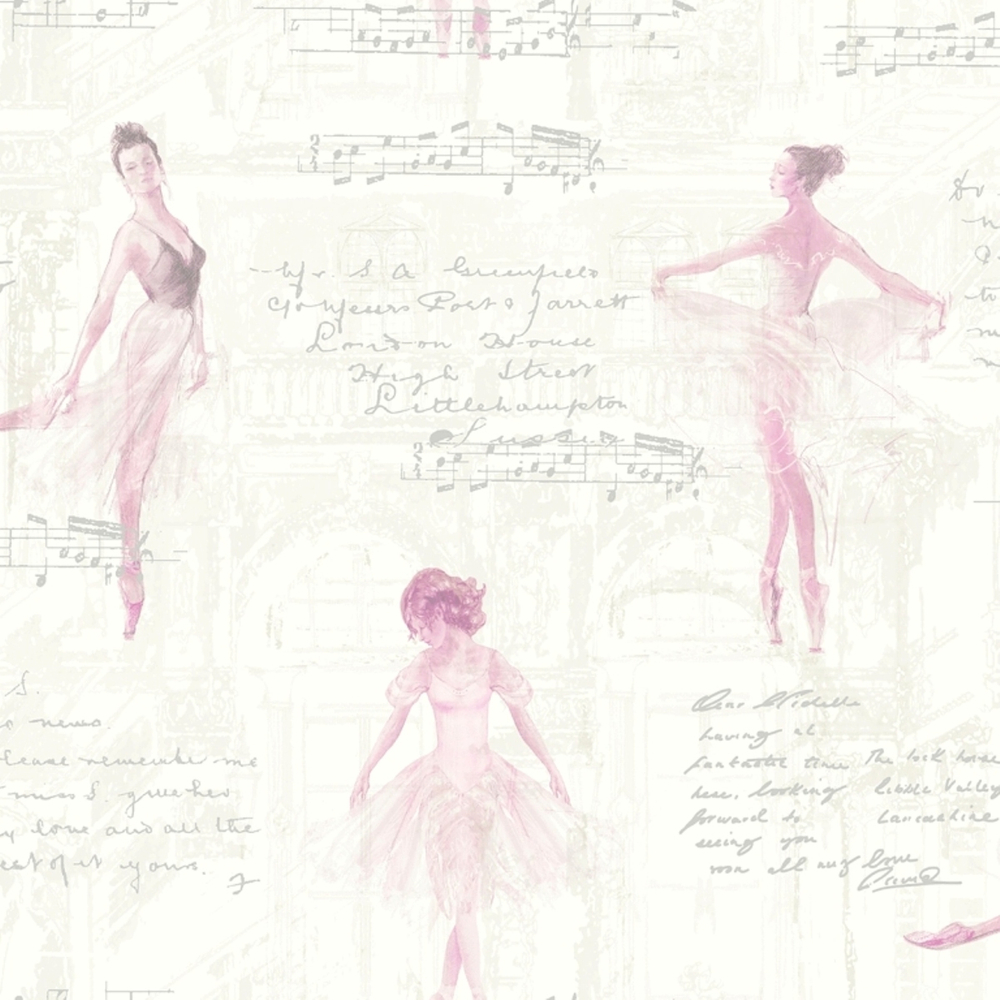 Mr. S A Greenfield
C/o Messrs Post & Jarrett
London House
High Street
Littlehampton
Sussex
S.
news.
lease remembe me
miss S. give her
y love and all the
est of it yours.
Dear Michelle
having at
fantastic time
here. looking
forward to
seeing you
all
love
The lock house
Ribble Valley
Lancashire